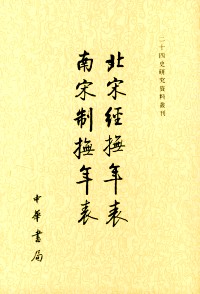 二十四史研究资料丛刊
北宋經撫年表
南宋制撫年表
中華書局